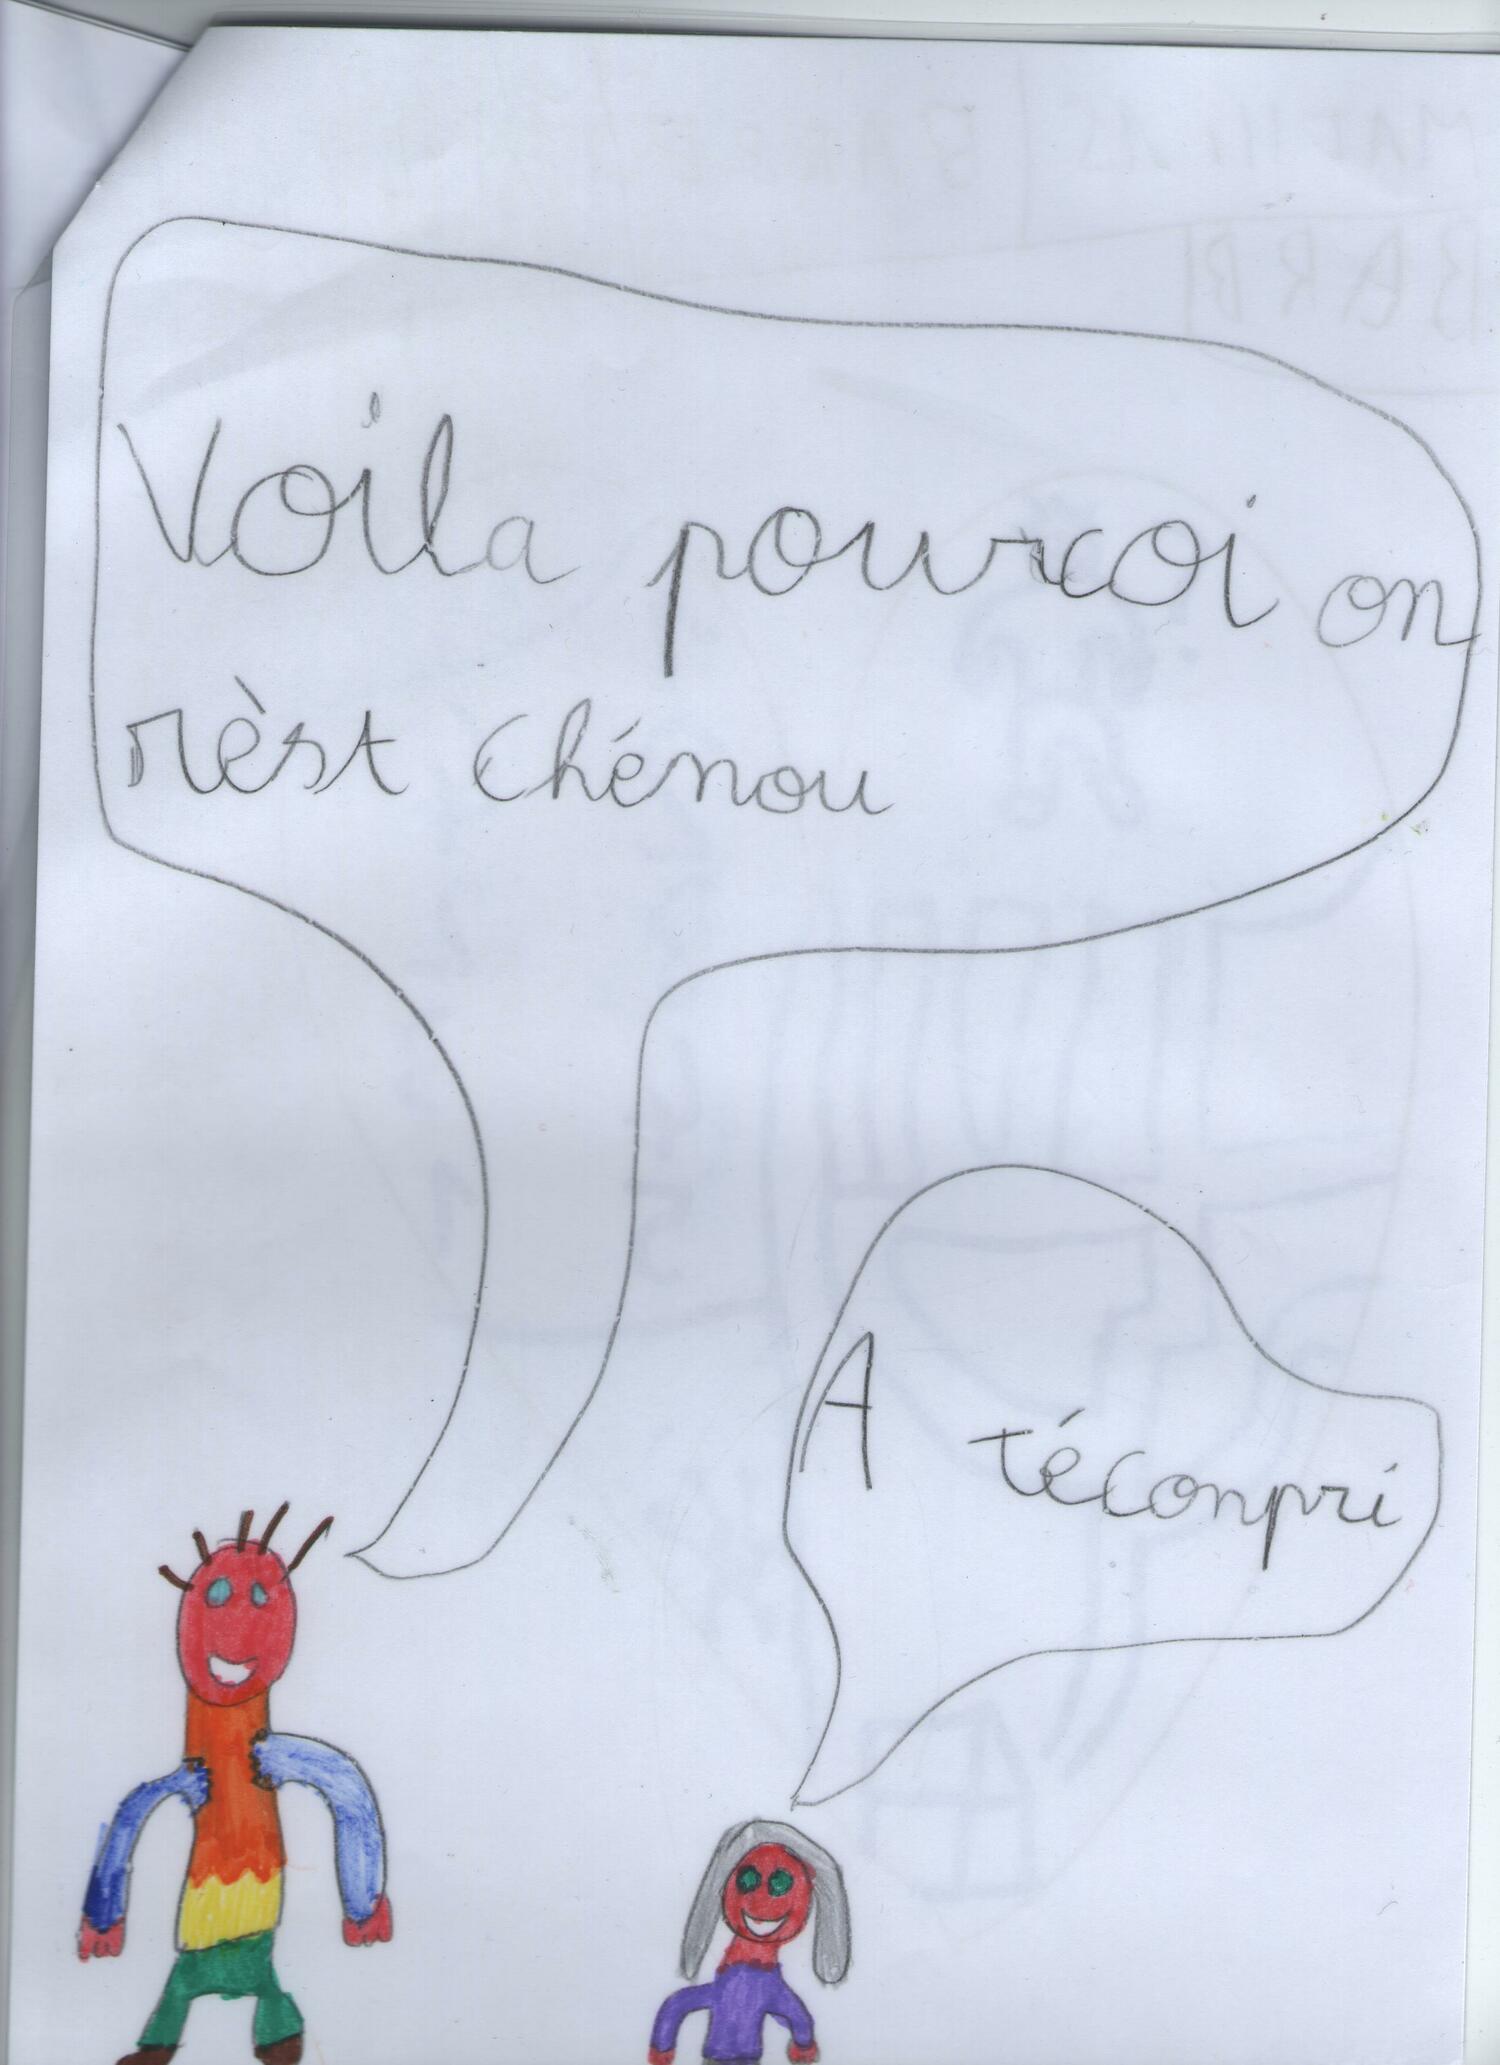 Voila pourcoi on
rèst chénou
A técompri